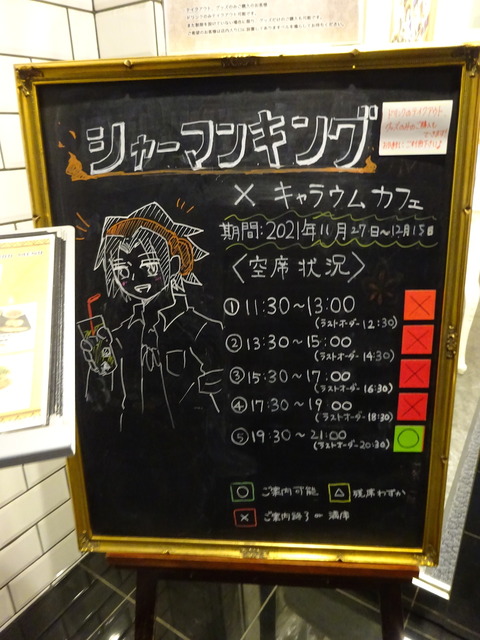 シャーマンキング
× キャラウム カフェ
期間:2021年11月27日~12月15日
〈空席状況〉
① 11:30~13:00
(ラストオーダー 12:30)
② 13:30~15:00
(ラストオーダー 14:30)
③ 15:30~17:00
(ラストオーダー 16:30)
④ 17:30~19:00
(ラストオーダー 18:30)
⑤ 19:30~21:00
(ラストオーダー 20:30)
○ ご案内可能 △ 残席わずか
× ご案内終了 or 満席